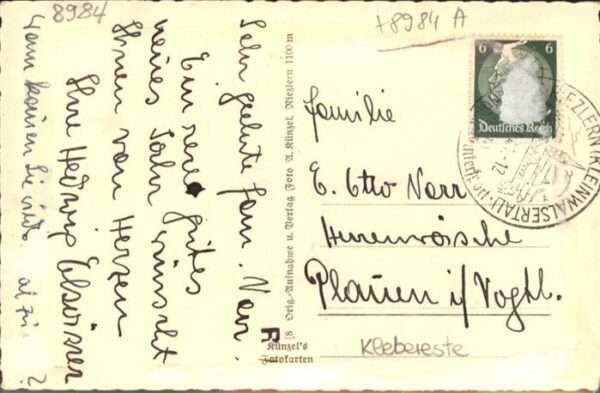 8984
+8984 A
Sehr geehrte Fam. Narr.
Ein gutes
neues Jahr wünscht
Ihnen von Herzen
Ihre Hedwig
Wann kommen Sie ?
18 Orig.-Aufnahme u. Verlag Foto A. Künzel, Riezlern 1100 m
Künzel's
Fotokarten
R
6 6
Deutsches Reich
RIEZLERN (KLEINWALSERTAL)
12
Familie
E. Otto Narr
Plauen i/Vogtl.
Klebereste